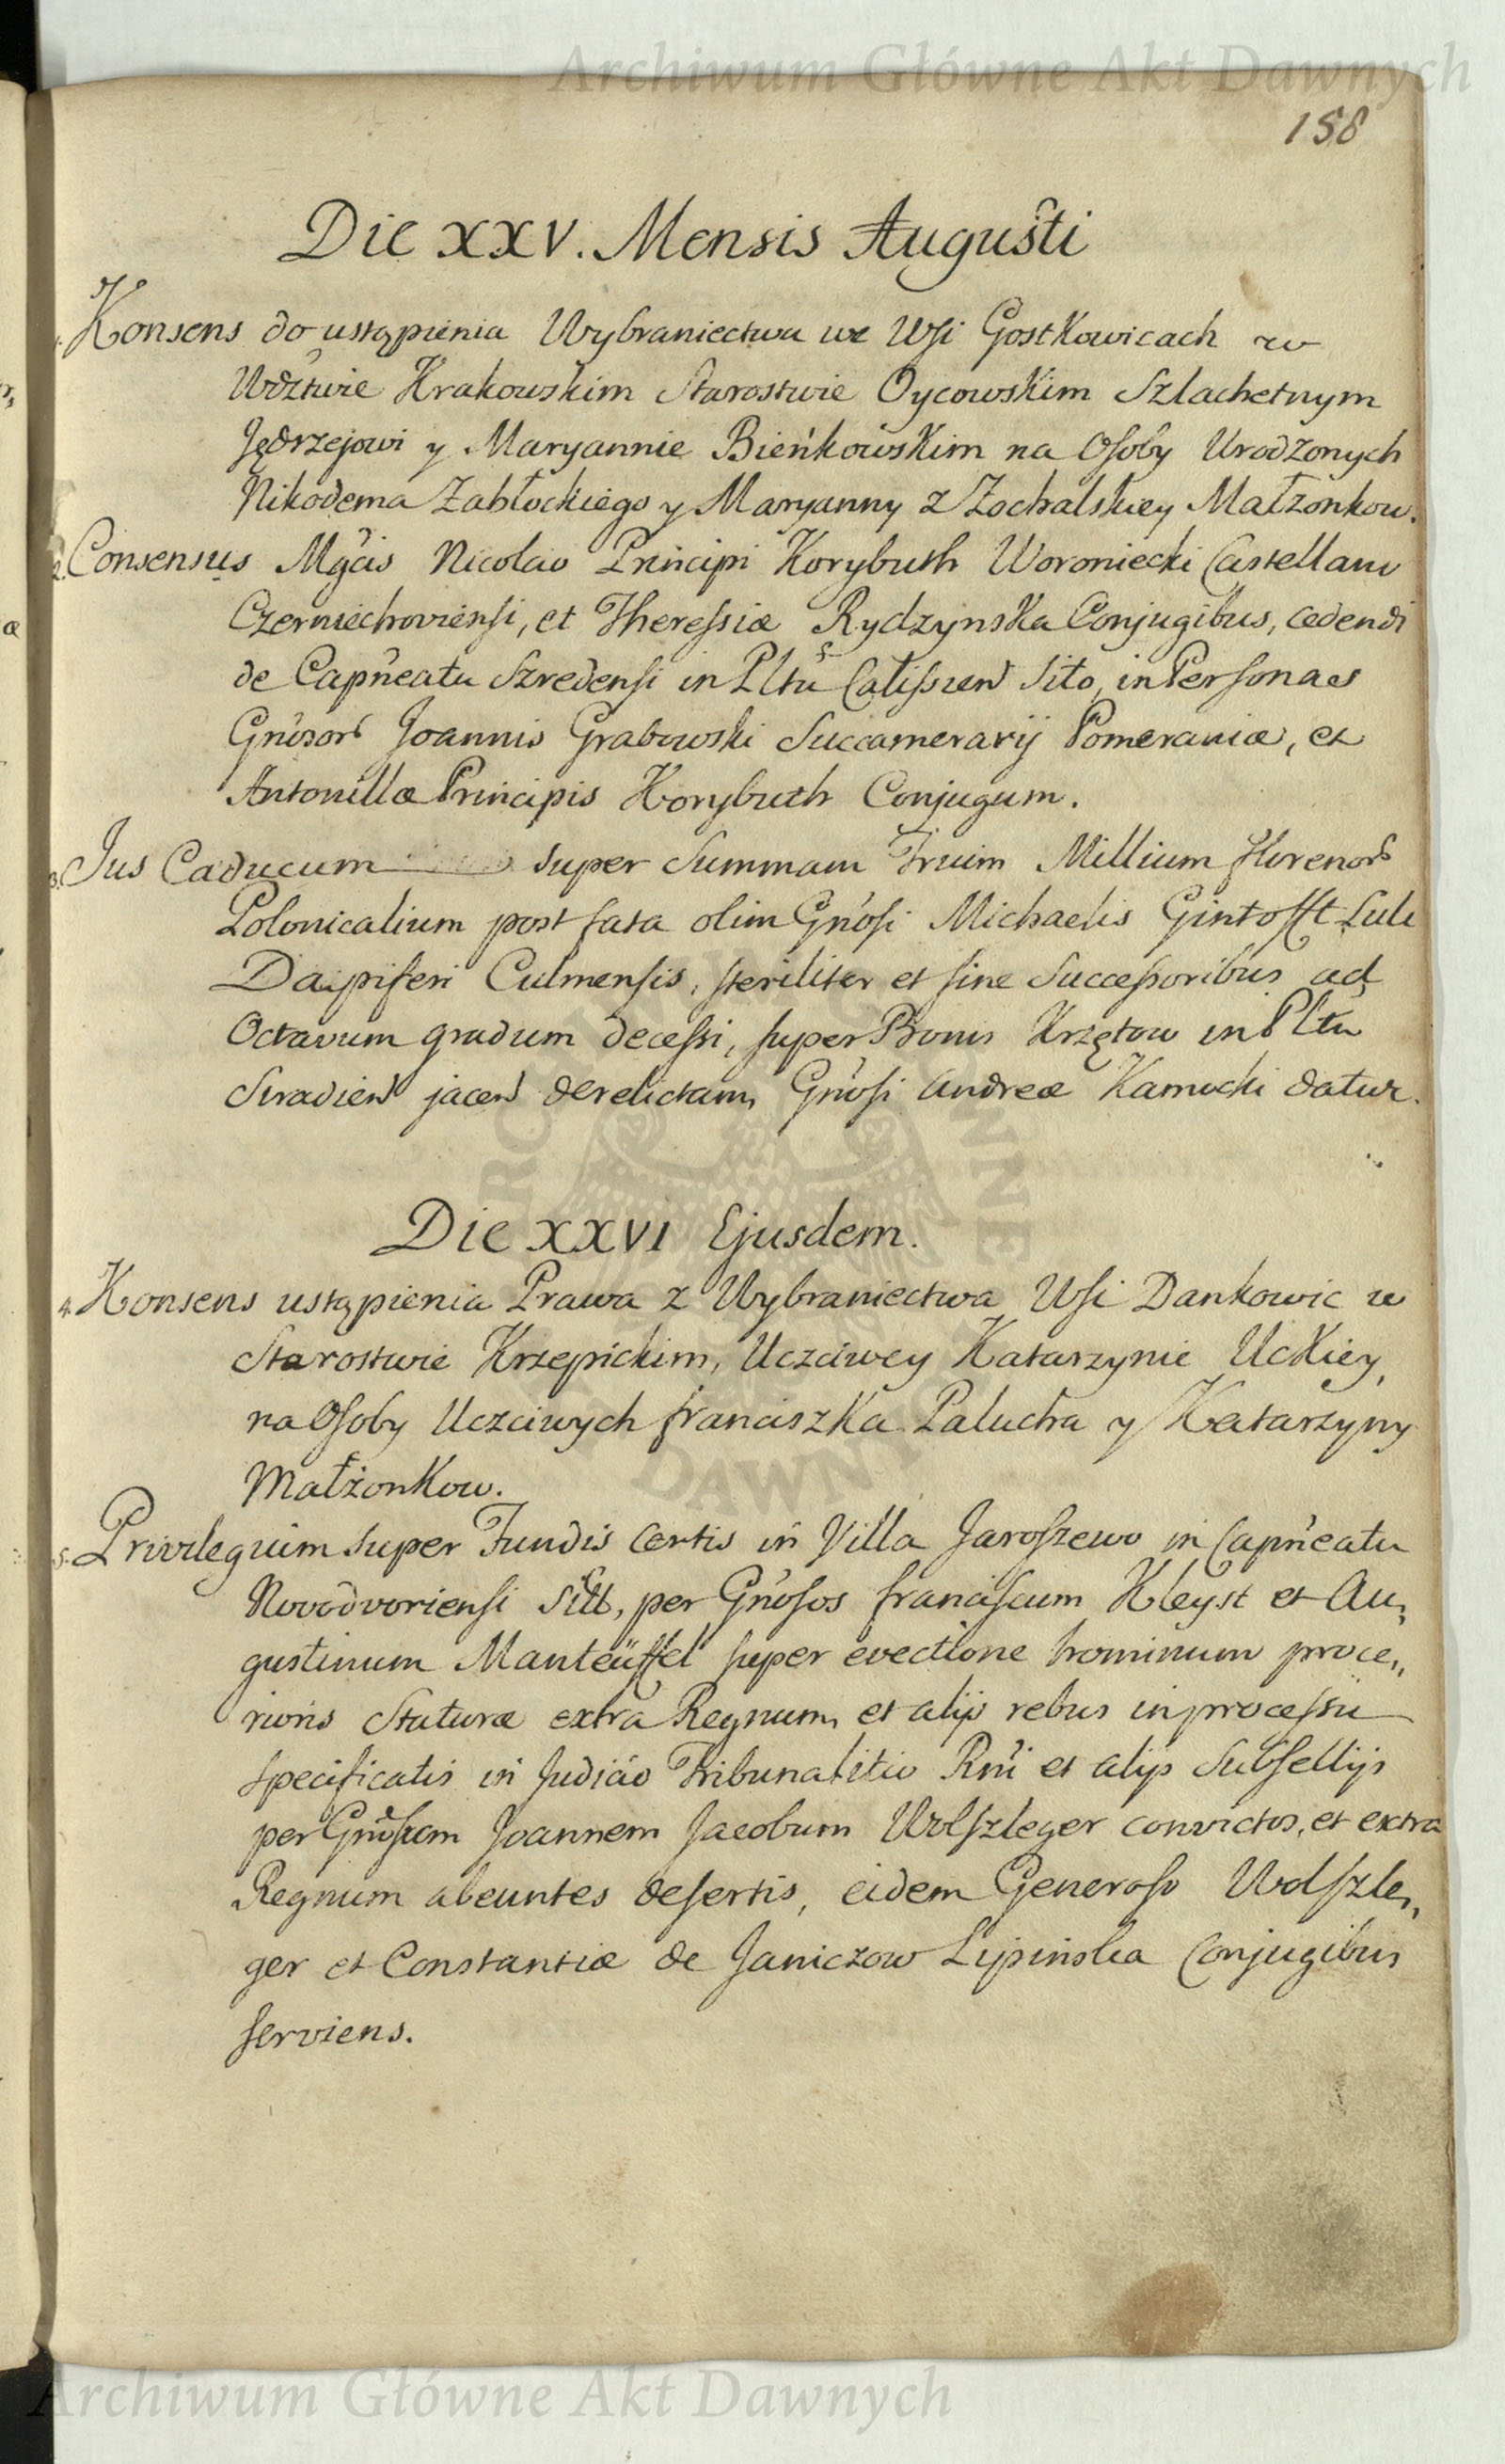 Archiwum Główne Akt Dawnych
158
Die XXV. Mensis Augusti
1. Konsens do ustąpienia Wybraniectwa we Wsi Gostkowicach w
Wdztwie Krakowskim Starostwie Oycowskim Szlachetnym
Jędrzejowi y Maryannie Bieńkowskim na Osoby Urodzonych
Nikodema Zabłockiego y Maryanny z Zochalskiey Małżonkow.
2. Consensus Mgcis Nicolao Principi Korybuth Woroniecki Castellano
Czerniechoviensi, et Theressiæ Rydzynska Conjugibus, cedendi
de Capneatu Szredensi in Pltu Calissien sito, in Personas
Gnosor Joannis Grabowski Succamerarij Pomeraniæ, et
Antonillæ Principis Korybuth Conjugum.
3. Jus Caducum super Summam Trium Millium florenor
Polonicalium post fata olim Gnosi Michaelis Gintofft
Dapiferi Culmensis, steriliter et sine Successoribus ad
Octavum gradum decessi, super Bonis Krzętow in Pltu
Siradien jacen derelictam, Gnosi Andreæ Karnucki datur.
Die XXVI Ejusdem.
4. Konsens ustąpienia Prawa z Wybraniectwa Wsi Dankowic w
Starostwie Krzepickim, Uczciwey Katarzynie Uckiey,
na Osoby Uczciwych franciszka Palucha y Katarzyny
Małżonkow.
5. Privilegium super Fundis certis in Villa Jaroszewo in Capneatu
Novodvoriensi, per Gnosos franciscum Kleyst et Au„
gustinum Manteüffel super evectione hominum proce„
rioris Staturæ extra Regnum, et alijs rebus in processu
specificatis in Judicio Tribunalitio Rni et alijs Subsellijs
per Gnosum Joannem Jacobum Wolszleger convictos, et extra
Regnum abeuntes desertis, eidem Generoso Wolszle„
ger et Constantiæ de Janiczow Lipinska Conjugibus
serviens.
Archiwum Główne Akt Dawnych